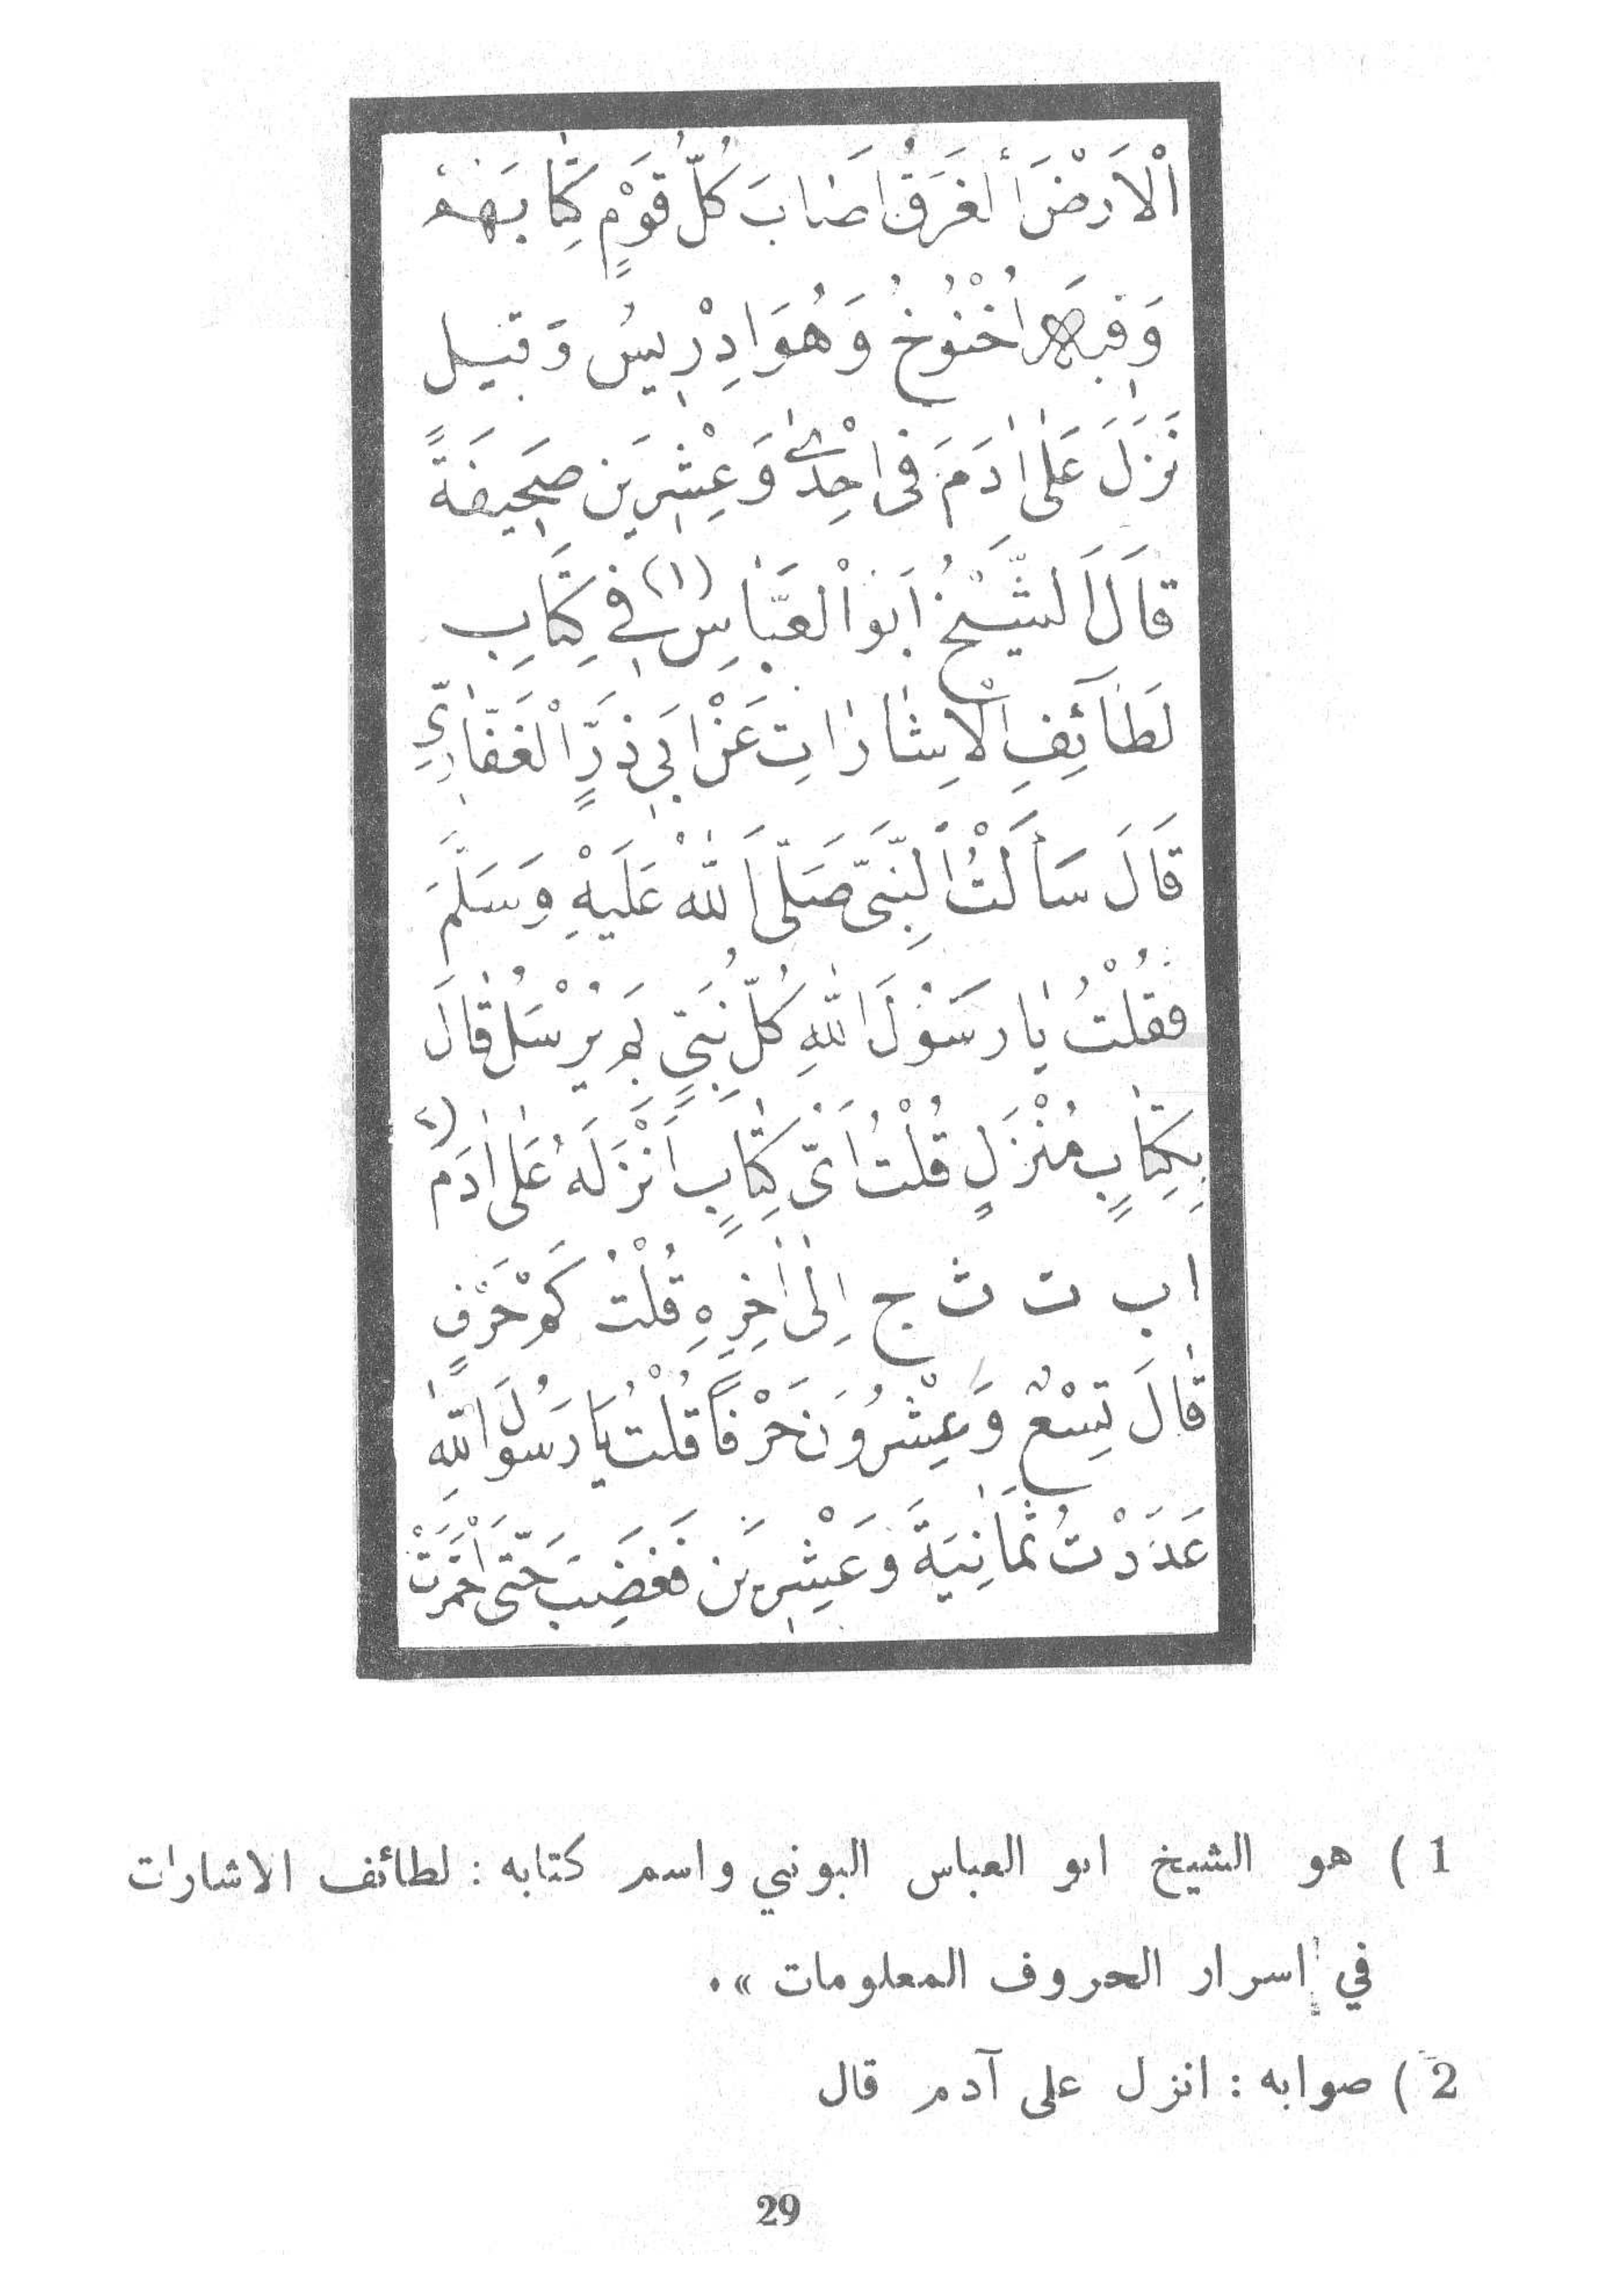 اْلاَرْضَ اْلغَرَقُ اَصَابَ كُلُّ قَوْمٍ كِتَابَهُمْ
وَقِيلَ اُخْنُوُخُ وَهُوَ اِدْرِيسُ وَقِيل
نَزَلَ عَلٰى اٰدَمَ فى اِحْدٰى وَعِشْرِيَن صَحِيفَةً
قَالَ الشَّيْخُ اَبُو اْلعَبَّاسِ (١) فِى كِتَابِ
لَطَآئِفِ اْلاِشَارَاتِ عَنْ اَبِى ذَرٍّ اْلغَفَّارِيِّ
قَالَ سَأَلْتُ اْلنَّبِىَّ صَلَّى اَللّٰهُ عَلَيْهِ وَسَلَّمَ
فَقُلْتُ يَا رَسُوُلَ اللّٰهِ كُلُّ نَبِيٍّ بِمَ يُرْسَلُ قَالَ
بِكِتَابٍ مُنْزَلٍ قُلْتُ اَىَّ كِتَابٍ اَنْزَلَهُ عَلٰى اٰدَمَ (٢)
ا ب ت ث ج اِلٰى اٰخِرِهِ قُلْتُ كَمْ حَرْفٍ
قَالَ تِسْعٌ وَعِشْرُوُنَ حَرْفًا قُلْتُ يَا رَسُولَ اللّٰهِ
عَدَدْتُ ثَمَانِيَةَ وَعِشْرِيَن فَغَضِبَ حَتَّى احْمَرَّتْ
1 ) هو الشيخ ابو العباس البوني واسم كتابه : لطائف الاشارات
في اسرار الحروف المعلومات » .
2 ) صوابه : انزل على آدم قال
29